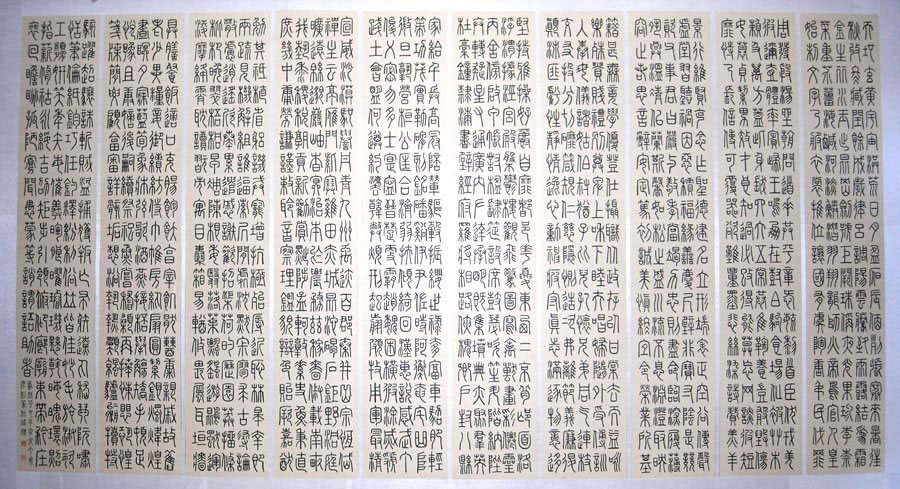 天地玄黃宇宙洪荒日月盈昃辰宿列張寒來暑往
秋收冬藏閏餘成歲律呂調陽雲騰致雨露結為霜
金生麗水玉出崑岡劍號巨闕珠稱夜光果珍李柰
菜重芥薑海鹹河淡鱗潛羽翔龍師火帝鳥官人皇
始制文字乃服衣裳推位讓國有虞陶唐弔民伐罪
周發殷湯坐朝問道垂拱平章愛育黎首臣伏戎羌
遐邇壹體率賓歸王鳴鳳在樹白駒食場化被草木
賴及萬方蓋此身髮四大五常恭惟鞠養豈敢毀傷
女慕貞絜男效才良知過必改得能莫忘罔談彼短
靡恃己長信使可覆器欲難量墨悲絲染詩讚羔羊
景行維賢克念作聖德建名立形端表正空谷傳聲
虛堂習聽禍因惡積福緣善慶尺璧非寶寸陰是競
資父事君曰嚴與敬孝當竭力忠則盡命臨深履薄
夙興溫凊似蘭斯馨如松之盛川流不息淵澄取映
容止若思言辭安定篤初誠美慎終宜令榮業所基
籍甚無竟學優登仕攝職從政存以甘棠去而益詠
樂殊貴賤禮別尊卑上和下睦夫唱婦隨外受傅訓
入奉母儀諸姑伯叔猶子比兒孔懷兄弟同氣連枝
交友投分切磨箴規仁慈隱惻造次弗離節義廉退
顛沛匪虧性靜情逸心動神疲守真志滿逐物意移
堅持雅操好爵自縻都邑華夏東西二京背邙面洛
浮渭據涇宮殿盤鬱樓觀飛驚圖寫禽獸畫彩仙靈
丙舍傍啟甲帳對楹肆筵設席鼓瑟吹笙升階納陛
弁轉疑星右通廣內左達承明既集墳典亦聚群英
杜稿鍾隸漆書壁經府羅將相路俠槐卿戶封八縣
家給千兵高冠陪輦驅轂振纓世祿侈富車駕肥輕
策功茂實勒碑刻銘磻溪伊尹佐時阿衡奄宅曲阜
微旦孰營桓公匡合濟弱扶傾綺迴漢惠說感武丁
俊乂密勿多士寔寧晉楚更霸趙魏困橫假途滅虢
踐土會盟何遵約法韓弊煩刑起翦頗牧用軍最精
宣威沙漠馳譽丹青九州禹跡百郡秦并嶽宗恆岱
禪主云亭雁門紫塞雞田赤城昆池碣石鉅野洞庭
曠遠綿邈巖岫杳冥治本於農務茲稼穡俶載南畝
我藝黍稷稅熟貢新勸賞黜陟孟軻敦素史魚秉直
庶幾中庸勞謙謹敕聆音察理鑑貌辨色貽厥嘉猷
勉其祗植省躬譏誡寵增抗極殆辱近恥林皋幸即
兩疏見機解組誰逼索居閒處沉默寂寥求古尋論
散慮逍遙欣奏累遣慼謝歡招渠荷的歷園莽抽條
枇杷晚翠梧桐早凋陳根委翳落葉飄颻遊鵾獨運
凌摩絳霄耽讀翫市寓目囊箱易輶攸畏屬耳垣牆
具膳餐飯適口充腸飽飫烹宰飢厭糟糠親戚故舊
老少異糧妾御績紡侍巾帷房紈扇圓潔銀燭煒煌
晝眠夕寐藍筍象床弦歌酒讌接杯舉觴矯手頓足
悅豫且康嫡後嗣續祭祀烝嘗稽顙再拜悚懼恐惶
箋牒簡要顧答審詳骸垢想浴執熱願涼驢騾犢特
駭躍超驤誅斬賊盜捕獲叛亡布射遼丸嵇琴阮嘯
恬筆倫紙鈞巧任釣釋紛利俗並皆佳妙毛施淑姿
工顰妍笑年矢每催曦暉朗曜璇璣懸斡晦魄環照
指薪修祜永綏吉劭矩步引領俯仰廊廟束帶矜莊
徘徊瞻眺孤陋寡聞愚蒙等誚謂語助者焉哉乎也